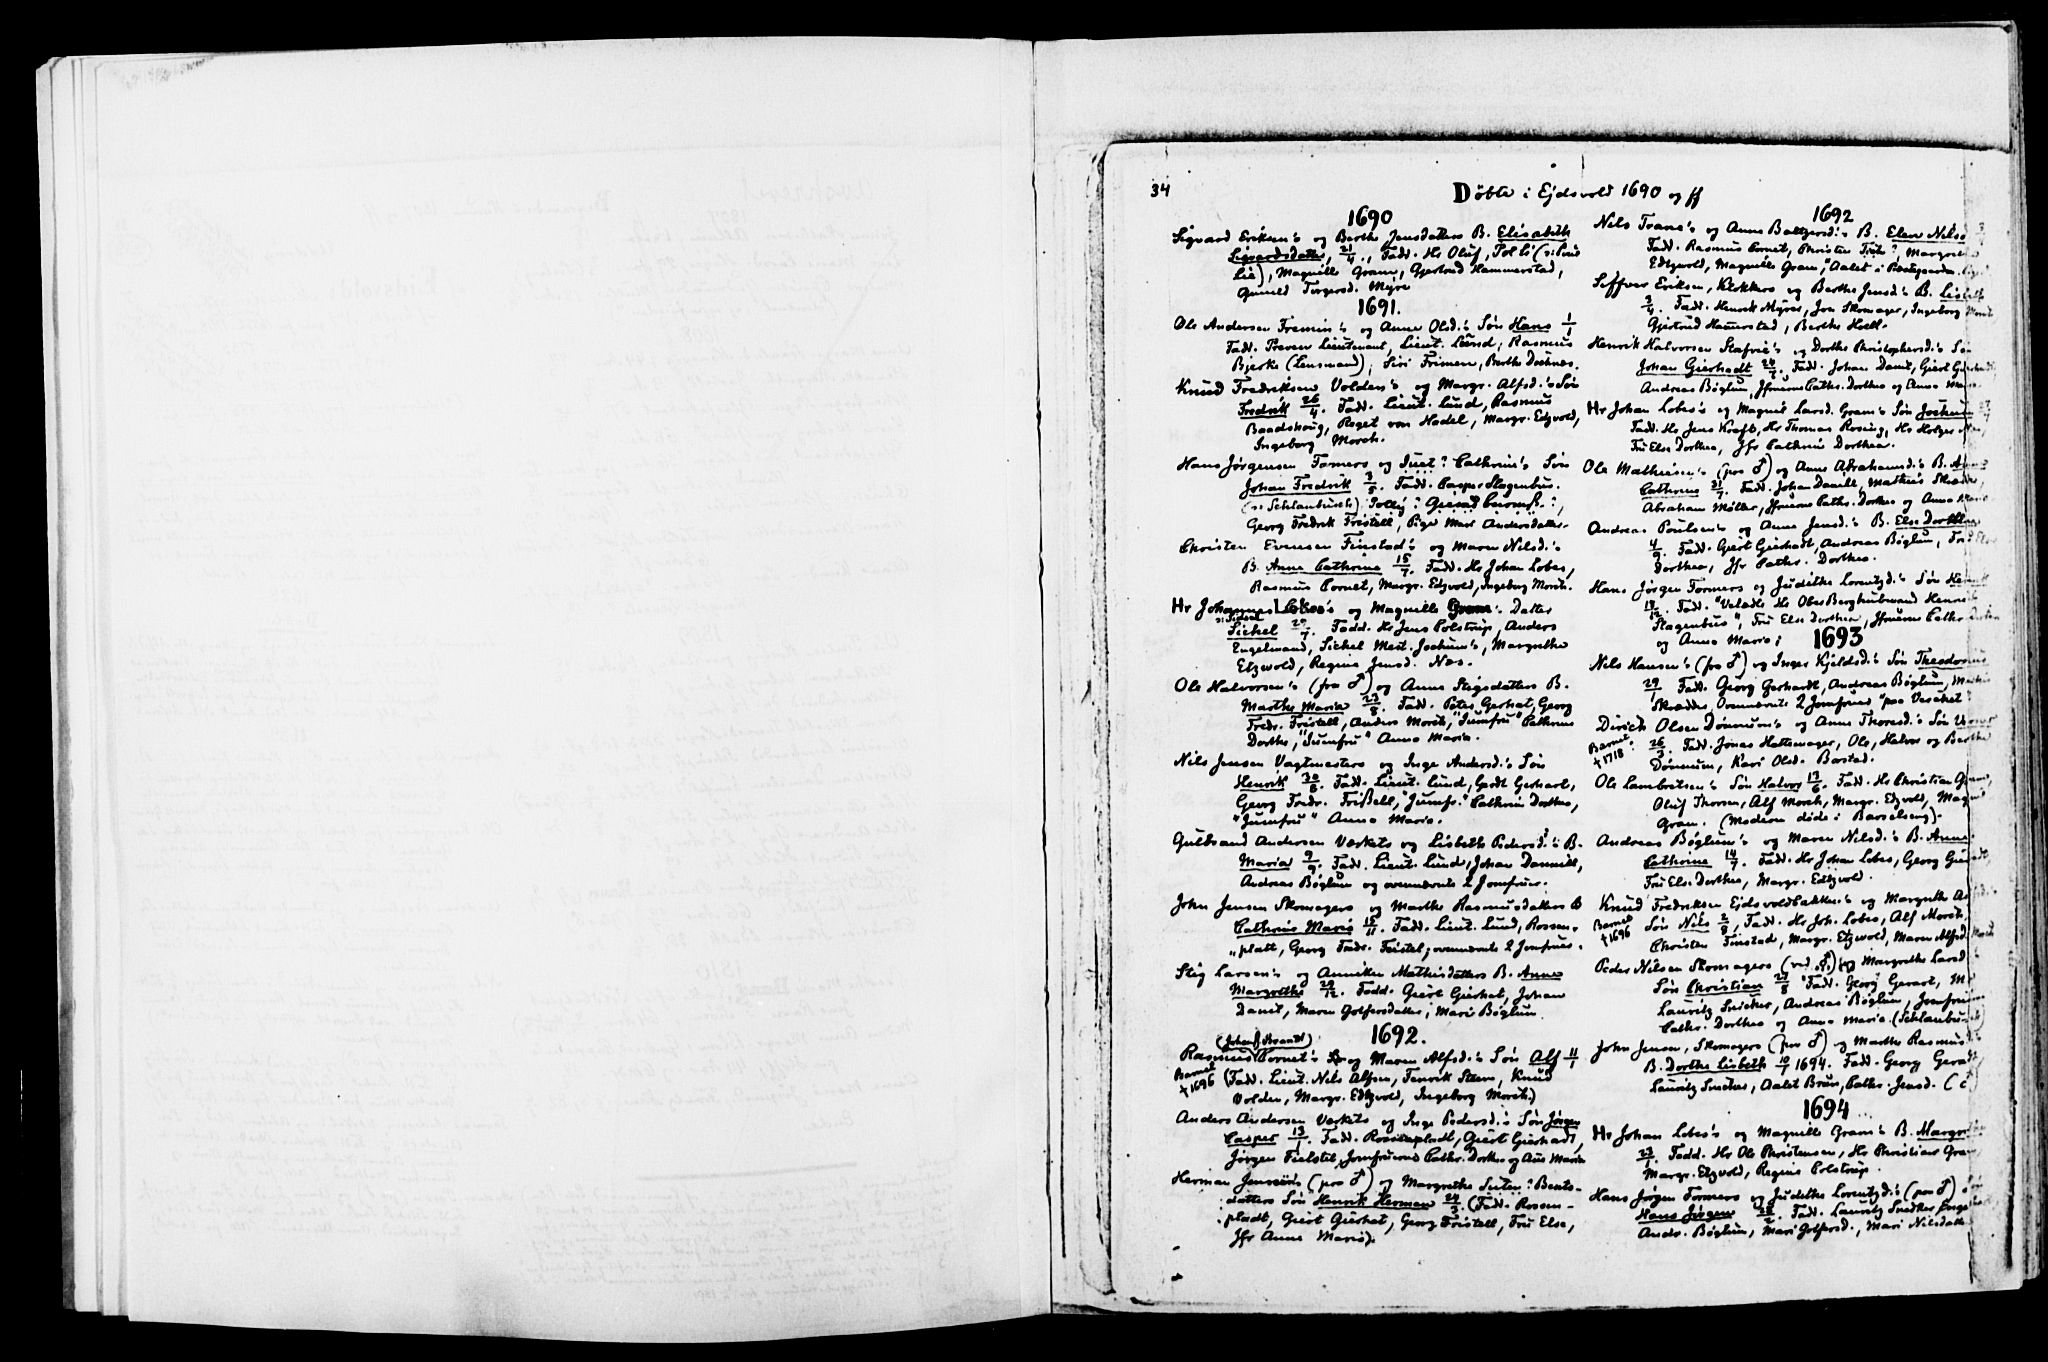 34
Døbte i Ejdsvold 1690 og ff
1690
Sigvard Eriksen's og Berthe Jensdatters B. Elisabeth
Sigvardsdatter, 21/4., Fadd. Hr Oluf, Tol Li (ɔ: Siri
Lie), Magnille Gram, Gjertrud Hammerstad,
Gunild Torgersd. Myre
1691.
Ole Andersen Fremin's og Anne Olsd.'s Søn Hans 1/1
Fadd. Preven Lieutenant, Lieut. Lund, Rasmus
Bjerke (Lensmand), Siri Frimen, Berthe Doknes.
Knud Fredriksen Volden's og Margr. Alfsd.'s Søn
Fredrik 26/4. Fadd. Lieut. Lund, Rasmus
Baadshoug, Roget von Hadel, Margr. Edzvold,
Ingeborg Morch.
Hans Jørgensen Formers og Juet? Cathrine's Søn
Johan Fredrik 3/5. Fadd. Casper Slagenbus.
(ɔ: Schlanbusch)
Georg Fredrik Fristell, Pige Mari Andersdatter.
Christen Evensen Finstad's og Maren Nilsd.'s
B. Anne Cathrine 15/7. Fadd. Hr Johan Lobes,
Rasmus Cornet, Margr. Edzvold, Ingeborg Morch.
Hr Johannes Lobes's og Magnille Gram's Datter
Sickel 29/7. Fadd. Hr Jens Colstrup, Anders
Engelmand, Sickel Mest. Jochum's, Margrethe
Etzvold, Regine Jensd. Næs.
Ole Halvorsen's (fra ♂) og Anne Stigsdatters B.
Marthe Maria 23/8. Fadd. Peter Gerhat, Georg
Fredr. Fristell, Anders Morch, "Jumfru" Cathrine
Dorthe, "Jumfru" Anna Maria.
Nils Jensen Vagtmesters og Inge Andersd.'s Søn
Henrik 30/8. Fadd. Lieut. Lund, Gerdt Gerhart,
Georg Fredr. Frissell, "Jumfr." Cathrin Dorthea,
"Jumfru" Anna Maria.
Gulbrand Andersen Værkets og Lisbeth Pedersd.'s B.
Maria 9/9. Fadd. Lieut. Lund, Johan Danniell,
Andreas Bøglun og ovennævnte 2 Jomfruer.
John Jensen Skomagers og Marthe Rasmusdatters B
Cathrine Maria 15/11. Fadd. Lieut. Lund, Rossen-
platt, Georg Fredr. Fristel, ovennævnte 2 Jomfruer.
Stig Larsen's og Anniken Mathisdatters B. Anne
Margrethe 29/12. Fadd. Giert Gierhat, Johan
Daniel, Maren Golfersdatter, Mari Bøglun
1692.
(Johan Brandt)
Rasmus Cornet's og Maren Alfsd.'s Søn Alf 11/1
Barnet †1696 (Fadd. Lieut. Nils Alfsen, Henrik Steen, Knud
Volden, Margr. Edtzvold, Ingeborg Morch.)
Anders Andersen Værkets og Inge Pedersd.'s Søn Jørgen
Casper 13/1. Fadd. Rossenpladt, Giert Gierhadt,
Jørgen Fielstel, Jomfruerne Cathr. Dorthe og Ane Maria
Herman (fra ♂) og Margrethe Bents-
datters Søn Henrik Herman 24/3. (Fadd. Rossen-
pladt, Giert Gierhat, Georg Fristell, Fru Else,
Jfr Anne Maria).
1692
Nils Trane's og Anne Baltzersd.'s B. Elen Nilsd
Fadd. Rasmus Cornet, Christen Margrethe
Edtzvold, Magnille Gram, "Aalet i Præstegaarden
Siffver Eriksen, Klokkers og Berthe Jensd.'s B. Lisbeth
3/4. Fadd. Henrik Myrer, Jon Skomager, Ingeborg Morch
Gjertrud Hamerstad, Berthe Holl.
Henrik Halvorsen Stafvic's og Dorthe Christophersd.'s Søn
Johan Gierhadt 24/7. Fadd. Johan Daniel, Giert Gierhadt
Andreas Bøglun, Jfruerne Cathr. Dorthea og Anna Maria
Hr Johan Lobes's og Magnil Larsd. Gram's Søn Jochum
Fadd. Hr Jens Kraft, Hr Thomas Rosing, Hr Holger
Fru Else Dorthea, Jfr Cathrin Dorthea.
Ole Mathisen's (pro ♂) og Anne Abrahamsd.'s B. Anne
Cathrine 31/7. Fadd. Johan Daniell, Mathis Skræder,
Abraham Møller, Jfruerne Cathr. Dorthea og Anna Maria.
Andreas Poulsen's og Anne Jensd.'s B. Else Dorthea
4/9. Fadd. Giert Gierhadt, Andreas Bøglun, Fru Else
Dorthea, Jfr Cathr. Dorthea.
Hans Jørgen Formers og Judithe Lorentzd.'s Søn Henrik
18/12. Fadd. "Velædle Hr Ober Berghubmand Henrik
Slagenbus", Fru Else Dorthea, Jfruerne Cathr. Dorthea
og Anna Maria;
1693
Nils Hansen's (fra ♂) og Inger Kjeldsd.'s Søn Theodorus
29/1. Fadd. Georg Gerhardt, Andreas Bøglun, Mathis
Skrædder, Ovennævnte 2 Jomfruer "paa Verchet".
Dirich Olsen Dønnum's og Anne Thoresd.'s Søn
Barnet †1718. 26/3. Fadd. Jonas Hattemager, Ole, Halvor og Berthe
Dønnum, Kari Olsd. Barstad.
Ole Lambretsen's Søn Halvor 13/6. Fadd. Hr Christian Gram,
Oluf Thorsen, Alf Morch, Margr. Edzvold, Magnil
Gran. (Moderen døde i Barselseng).
Andreas Bøglun's og Maren Nilsd.'s B. Anne
Cathrine 14/7. Fadd. Hr Johan Lobes, Georg
Fru Else Dorthea, Margr. Edtzvold.
Knud Fredriksen Ejdsvoldbakken's og Margrethe
Barnet †1696 Søn Nils 2/8, Fadd. Hr Joh. Lobes, Alf Morch,
Christen Finstad, Margr. Etzvold, Maren Alfsd.
Peder Nilsen Skomagers (ved ♂) og Margrethe Larsd
Søn Christian 27/8 Fadd. Georg Gerart,
Lauritz Snicker, Andreas Bøglun, Jomfruerne
Cathr. Dorthea og Anna Maria. (Schlanbusch)
John Jensen, Skomagers (pro ♂) og Marthe Rasmusd.'s
B. Dorthe Lisbeth 10/1 1694. Fadd. Georg Geradt,
Lauritz Snicker, Aalet Brun, Cathr. Jensd.
1694
Hr Johan Lobes's og Magnille Gram's B. Margrethe
23/1. Fadd. Hr Ole Christensen, Hr Christian Gram
Margr. Etzvold, Regine Colstrup.
Hans Jørgen Formers og Judithe Lorentzd.'s (pro ♂) Søn
Hans Jørgen 28/2. Fadd. Lauritz Snedker,
Andr. Bøglun, Mari Golfersd., Mari Nilsdatter